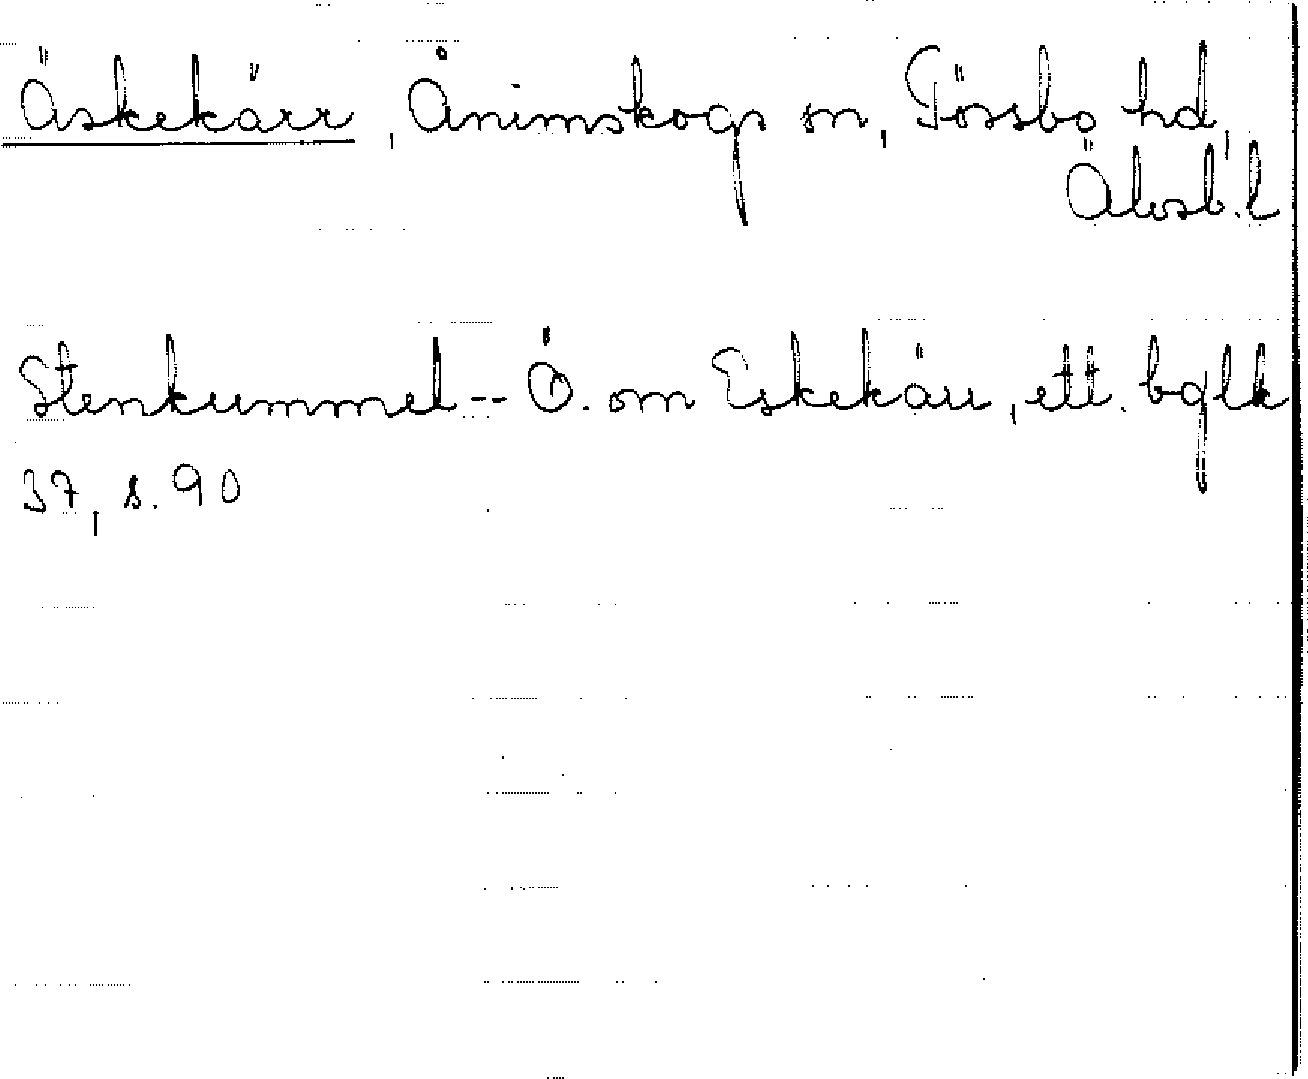 Äskekärr, Ånimskogs sn, Tössbo hd,
Älvsb. l
Stenkummel -- Ö. om Eskekärr, ett. bglk
37, s. 90